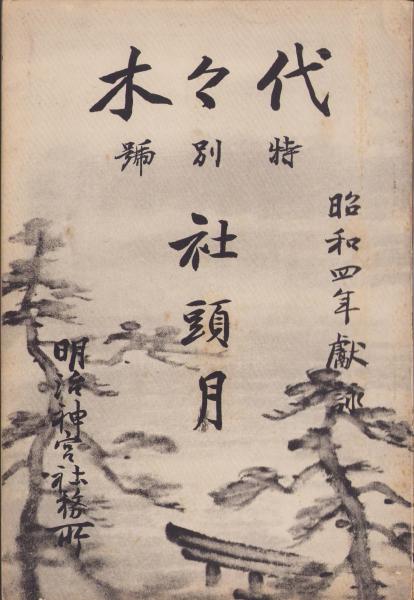 代々木
特別號
昭和四年獻詠
社頭月
明治神宮社務所